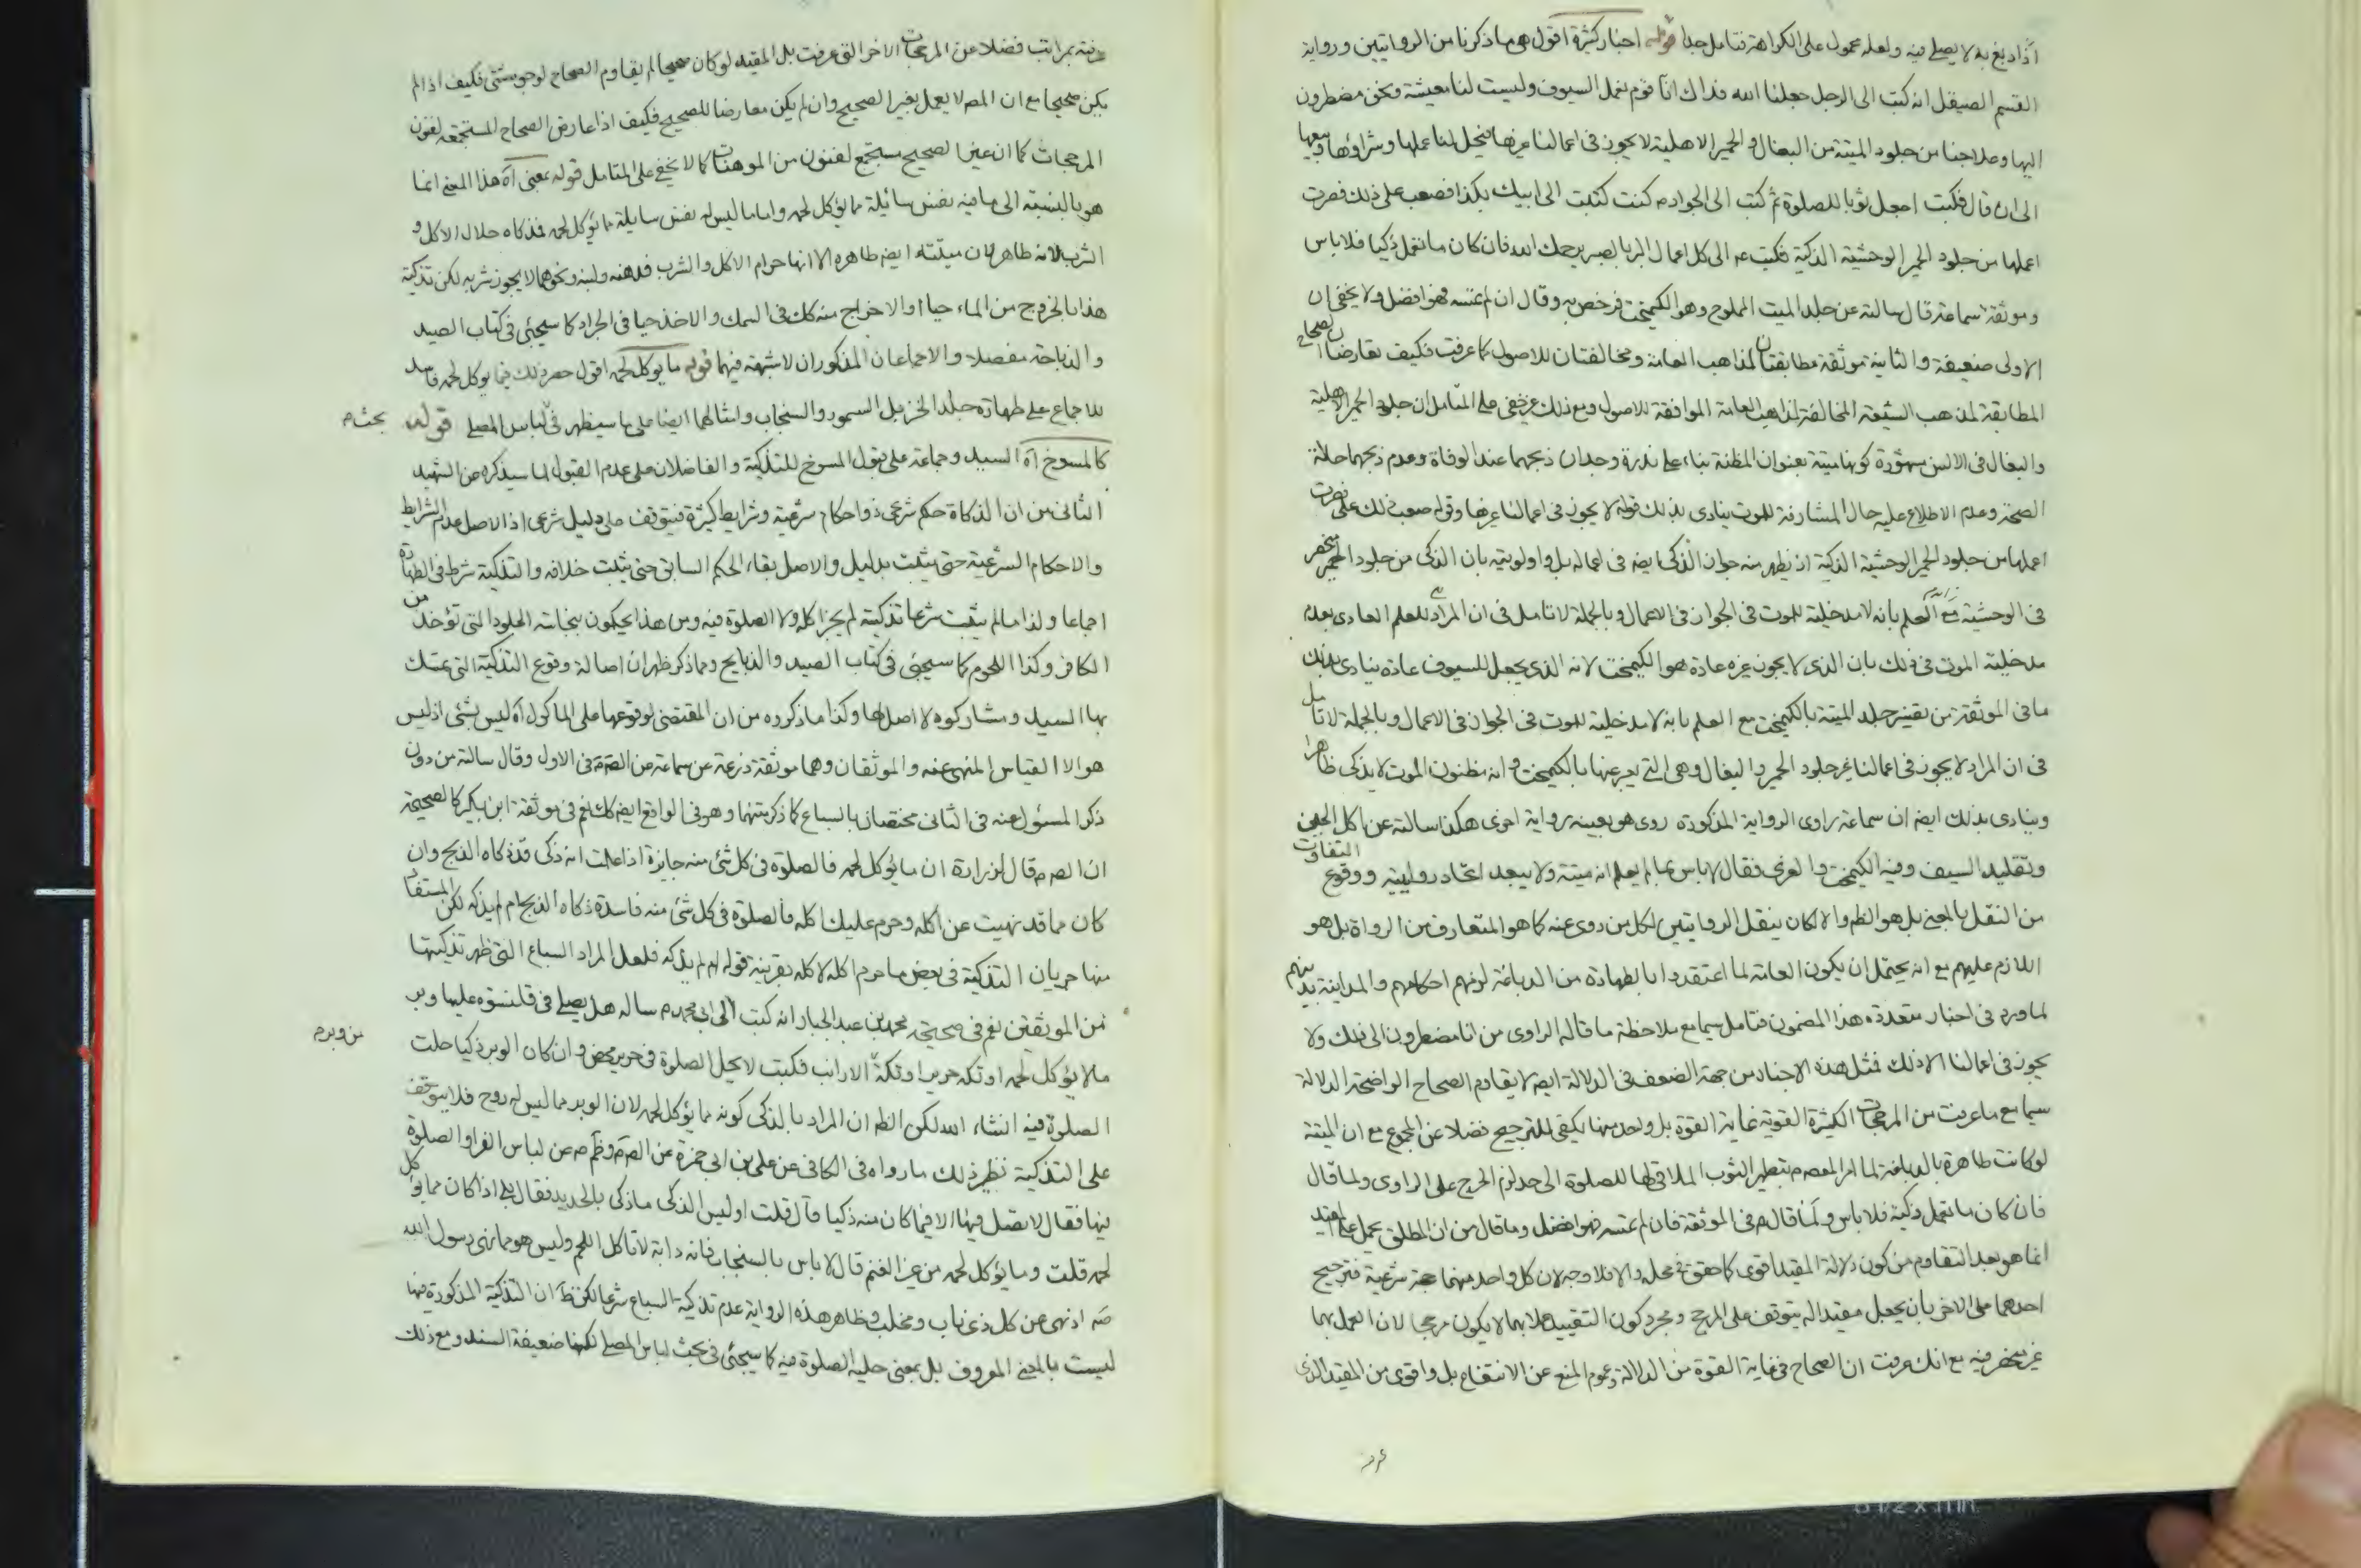 اذا دبغ به لا يصلى فيه ولعله محمول على الكراهة فتامل جدا قوله اخبار كثيرة اقول هى ما ذكرنا من الروايتين ورواية
القسم الصيقل انه كتب الى الرجل جعلنا الله فداك انا قوم نعمل السيوف وليست لنا معيشة ونحن مضطرون
اليها وعلاجنا من جلود الميتة من البغال والحمير الاهلية لا يجوز فى اعمالنا غيرها فيحل لنا عملها وشراؤها وبيعها
الى ان قال فكتب اجعل ثوبا للصلوة ثم كتب الى الجواد م كنت كتبت الى ابيك بكذا فصعب على ذلك فصرت
اعملها من جلود الحمر الوحشية الذكية فكتب عه الى كل اعمال البر بالصبر يرحمك الله فان كان ما تعمل ذكيا فلا باس
وموثقة سماعة قال سالته عن جلد الميت المملوح وهو الكيمخت فرخص به وقال ان لم تمسه فهو افضل ولا يخفى ان
الاولى ضعيفة والثانية موثقة مطابقتان لمذاهب العامة ومخالفتان للاصول كما عرفت فكيف تعارضان الصحاح
المطابقة لمذهب الشيعة المخالفة لمذاهب العامة الموافقة للاصول ومع ذلك غير خفى على المتامل ان جلود الحمر الاهلية
والبغال فى الالسن مشهورة كونها ميتة بعنوان المظنة بناء على ندرة وجدان ذبحهما عند الوفاة وعدم ذبحهما حالة
الصحة وعدم الاطلاع عليه حال المشارفة للموت ينادى بذلك قوله لا يجوز فى اعمالنا غيرها وقوله صعب ذلك على فصرت
اعملها من جلود الحمر الوحشية الذكية اذ يظهر منه جواز الذكى ايضه فى اعماله بل واولويته بان الذكى من جلود الحمر منحصر
فى الوحشية مع العلم بانه لا مدخلية للموت فى الجواز فى الاعمال وبالجملة لا تامل فى ان المراد للعلم العادى بعدم
مدخلية الموت فى ذلك بان الذى لا يجوز غيره عادة هو الكيمخت لانه الذى يجعل للسيوف عادة ينادى بذلك
ما فى الموثقة من تفسير جلد الميتة بالكيمخت مع العلم بانه لا مدخلية للموت فى الجواز فى الاعمال وبالجملة لا تامل
فى ان المراد لا يجوز فى اعمالنا غير جلود الحمير والبغال وهى التى يعبر عنها بالكيمخت وانه مظنون الموت لا يذكى ظاهرا
وينادى بذلك ايضه ان سماعة راوى الرواية المذكورة روى هو بعينه رواية اخرى هكذا سالته عن اكل الجبن
وتقليد السيف وفيه الكيمخت والغرى فقال لا باس بما لم يعلم انه ميتة ولا يبعد اتحاد روايتيه ووقوع التفاوت
من النقل بالمعنى بل هو الظه والا لكان ينقل الروايتين لكل من روى عنه كما هو المتعارف من الرواة بل هو
اللازم عليهم مع انه يحتمل ان يكون العامة لما اعتقدوا بالطهارة من الدباغة لزمهم احكامهم والمداينة بدينهم
لما ورد فى اخبار متعددة هذا المضمون فتامل سيما مع ملاحظة ما قاله الراوى من انا مضطرون الى ذلك ولا
يجوز فى اعمالنا الا ذلك فمثل هذه الاخبار من جهة الضعف فى الدلالة ايضه لا يقاوم الصحاح الواضحة الدلالة
سيما مع ما عرفت من المرجحات الكثيرة القوية غاية القوة بل واحد منها يكفى للترجيح فضلا عن المجموع مع ان الميتة
لو كانت طاهرة بالدباغة لما امر المعصوم بتطهير الثوب الملاقى لها للصلوة الى حد لزم الحرج على الراوى ولما قال
فان كان ما تعمل ذكية فلا باس ولما قال م فى الموثقة فان لم تمسه فهو افضل وما قال من ان المطلق يحمل على المقيد
انما هو بعد التقاوم من كون دلالة المقيد اقوى كما حقق فى محله والا فلا وجه لان كل واحد منهما حجة شرعية فترجيح
احدهما على الاخر بان يجعل مقيدا له يتوقف على المرجح ومجرد كون التقييد عملا بهما لا يكون مرجحا لان العمل بهما
غير منحصر فيه مع انك عرفت ان الصحاح فى غاية القوة من الدلالة وعموم المنع عن الانتفاع بل واقوى من المقيد الذى
عرفته بمراتب فضلا عن المرجحات الاخر التى عرفت بل المقيد لو كان صحيحا لم يقاوم الصحاح لوجوه شتى فكيف اذا لم
يكن صحيحا مع ان المصه لا يعمل بغير الصحيح وان لم يكن معارضا للصحيح فكيف اذا عارض الصحاح المستجمعة لفنون
المرجحات كما ان غير الصحيح مستجمع لفنون من الموهنات كما لا يخفى على المتامل قوله بمعنى آه هذا المعنى انما
هو بالنسبة الى ما فيه نفس سائلة مما يؤكل لحمه واما ما ليس له نفس سايلة مما يؤكل لحمه فذكاه حلال الاكل و
الشرب لانه طاهر لان ميتته ايضه طاهره الا انها حرام الاكل والشرب فدهنه ولبنه ونحوهما لا يجوز شربه لكن تذكية
هذا بالخروج من الماء حيا او الاخراج منه كك فى السمك والاخذ حيا فى الجراد كما سيجئ فى كتاب الصيد
والذباحة مفصلا والاجماعان المذكوران لا شبهة فيهما قوله ما يوكل لحمه اقول حصر ذلك فيما يوكل لحمه فاسد
للاجماع على طهارة جلد الخز بل السمور والسنجاب وامثالهما ايضا على ما سيظهر فى لباس المصلى قوله
بحث م
كالمسوخ آه السيد وجماعة على قبول المسوخ للتذكية والفاضلان على عدم القبول لما سيذكره عن الشهيد
الثانى من ان الذكاة حكم شرعى ذو احكام شرعية وشرايط كثيرة فيتوقف على دليل شرعى اذ الاصل عدم الشرايط
والاحكام الشرعية حتى يثبت بدليل والاصل بقاء الحكم السابق حتى يثبت خلافه والتذكية شرط فى الطهارة
اجماعا ولذا ما لم يثبت شرعا تذكيته لم يجز اكله ولا الصلوة فيه ومن هذا يحكمون بنجاسة الجلود التى تؤخذ من
الكافر وكذا اللحوم كما سيجئ فى كتاب الصيد والذبايح ومما ذكر ظهر ان اصالة وقوع التذكية التى تمسك
بها السيد ومشاركوه لا اصل لها وكذا ما ذكروه من ان المقتضى لوقوعها على الماكول آه ليس بشئ اذ ليس
هو الا القياس المنهى عنه والموثقان وهما موثقة زرعة عن سماعة عن الصه م فى الاول وقال سالته من دون
ذكر المسئول عنه فى الثانى مختصان بالسباع كما ذكرتهما وهو فى الواقع ايضه كك نعم فى موثقة ابن بكير كالصحيحة
ان الصه م قال لزرارة ان ما يؤكل لحمه فالصلوة فى كل شئ منه جايزة اذا علمت انه ذكى قد ذكاه الذبح وان
كان مما قد نهيت عن اكله وحرم عليك اكله فالصلوة فى كل شئ منه فاسدة ذكاه الذبح ام لم يذكه لكن المستفاد
منها جريان التذكية فى بعض ما حرم اكله لا كله بقرينة قوله ام لم يذكه فلعل المراد السباع التى ظهر تذكيتها
من الموثقين نعم فى صحيحة محمد بن عبد الجبار انه كتب الى ابى محمد م ساله هل يصلى فى قلنسوة عليها وبر
من وبر م
ما لا يؤكل لحمه او تكة حرير او تكة الارانب فكتب لا يحل الصلوة فى حرير محض وان كان الوبر ذكيا حلت
الصلوة فيه انشاء الله لكن الظه ان المراد بالذكى كونه مما يؤكل لحمه لان الوبر مما ليس له روح فلا يتوقف
على التذكية نظير ذلك ما رواه فى الكافى عن على بن ابى حمزة عن الصه م وظم م عن لباس الفراء والصلوة
فيها فقال لا تصل فيها الا فيما كان منه ذكيا قال قلت او ليس الذكى ما ذكى بالحديد فقال بلى اذا كان مما يؤكل
لحمه قلت وما يؤكل لحمه من غير الغنم قال لا باس بالسنجاب فانه دابة لا تاكل اللحم وليس هو مما نهى رسول الله
صه اذ نهى عن كل ذى ناب ومخلب وظاهر هذه الرواية عدم تذكية السباع شرعا لكن ظه ان التذكية المذكورة فيها
ليست بالمعنى المعروف بل بمعنى حلية الصلوة فيه كما سيجئ فى بحث لباس المصلى لكنها ضعيفة السند ومع ذلك